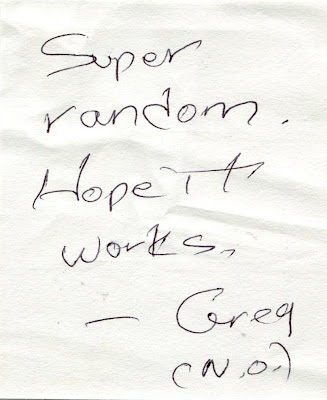 Super
random.
Hope it
works.
— Greg
(N.O.)